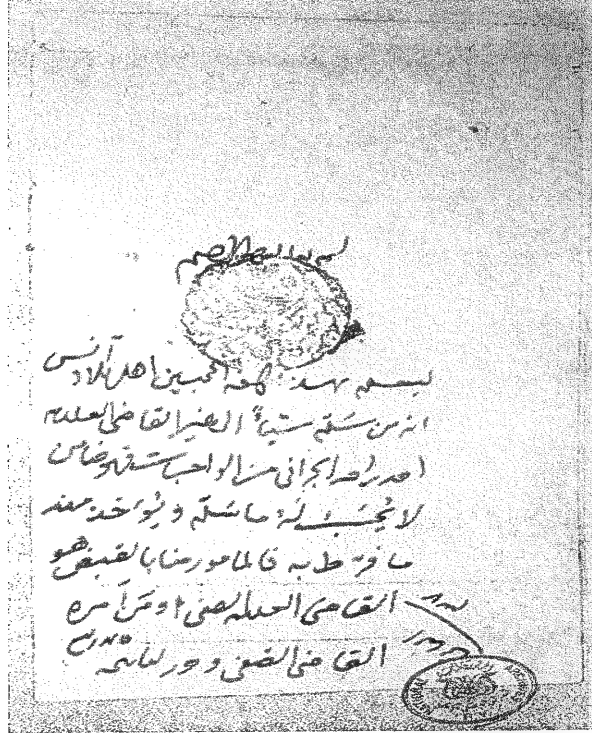 بسم الله الرحمن الرحيم
ليعلم بهذا كافة المحبين اهل بلاد آنس
انه من سلم شيئاً الى غير القاضي العلامه
احمد احمد الجرافي من الواجبات فهو ضامن
لا يحسب له ما سلم ويؤخذ منه
ما فرط به فالمامور منا بالقبض هو
القاضي العلامه الصفي او من آمره
القاضي الصفي